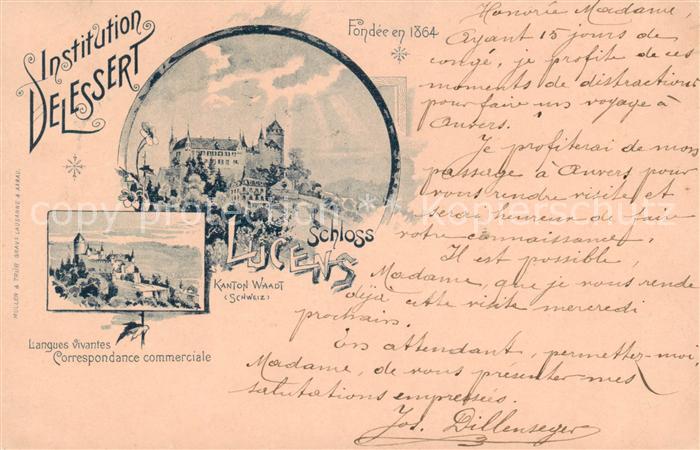 Institution
DELESSERT
Fondée en 1864
Schloss
LUCENS
KANTON WAADT
(SCHWEIZ)
Langues vivantes
Correspondance commerciale
MÜLLER & TRÜB GRAV. LAUSANNE & AARAU.
Honorée Madame,
Ayant 15 jours de
congé, je profite de ces
moments de distractions
pour faire un voyage à
Anvers.
Je profiterai de mon
passage à Anvers pour
vous rendre visite et
serai heureux de faire
votre connaissance.
Il est possible,
Madame, que je vous rende
déjà cette visite mercredi
prochain.
En attendant, permettez-moi,
Madame, de vous présenter mes
salutations empressées.
Jos. Dillenseger
copyright protection Kopierschutz